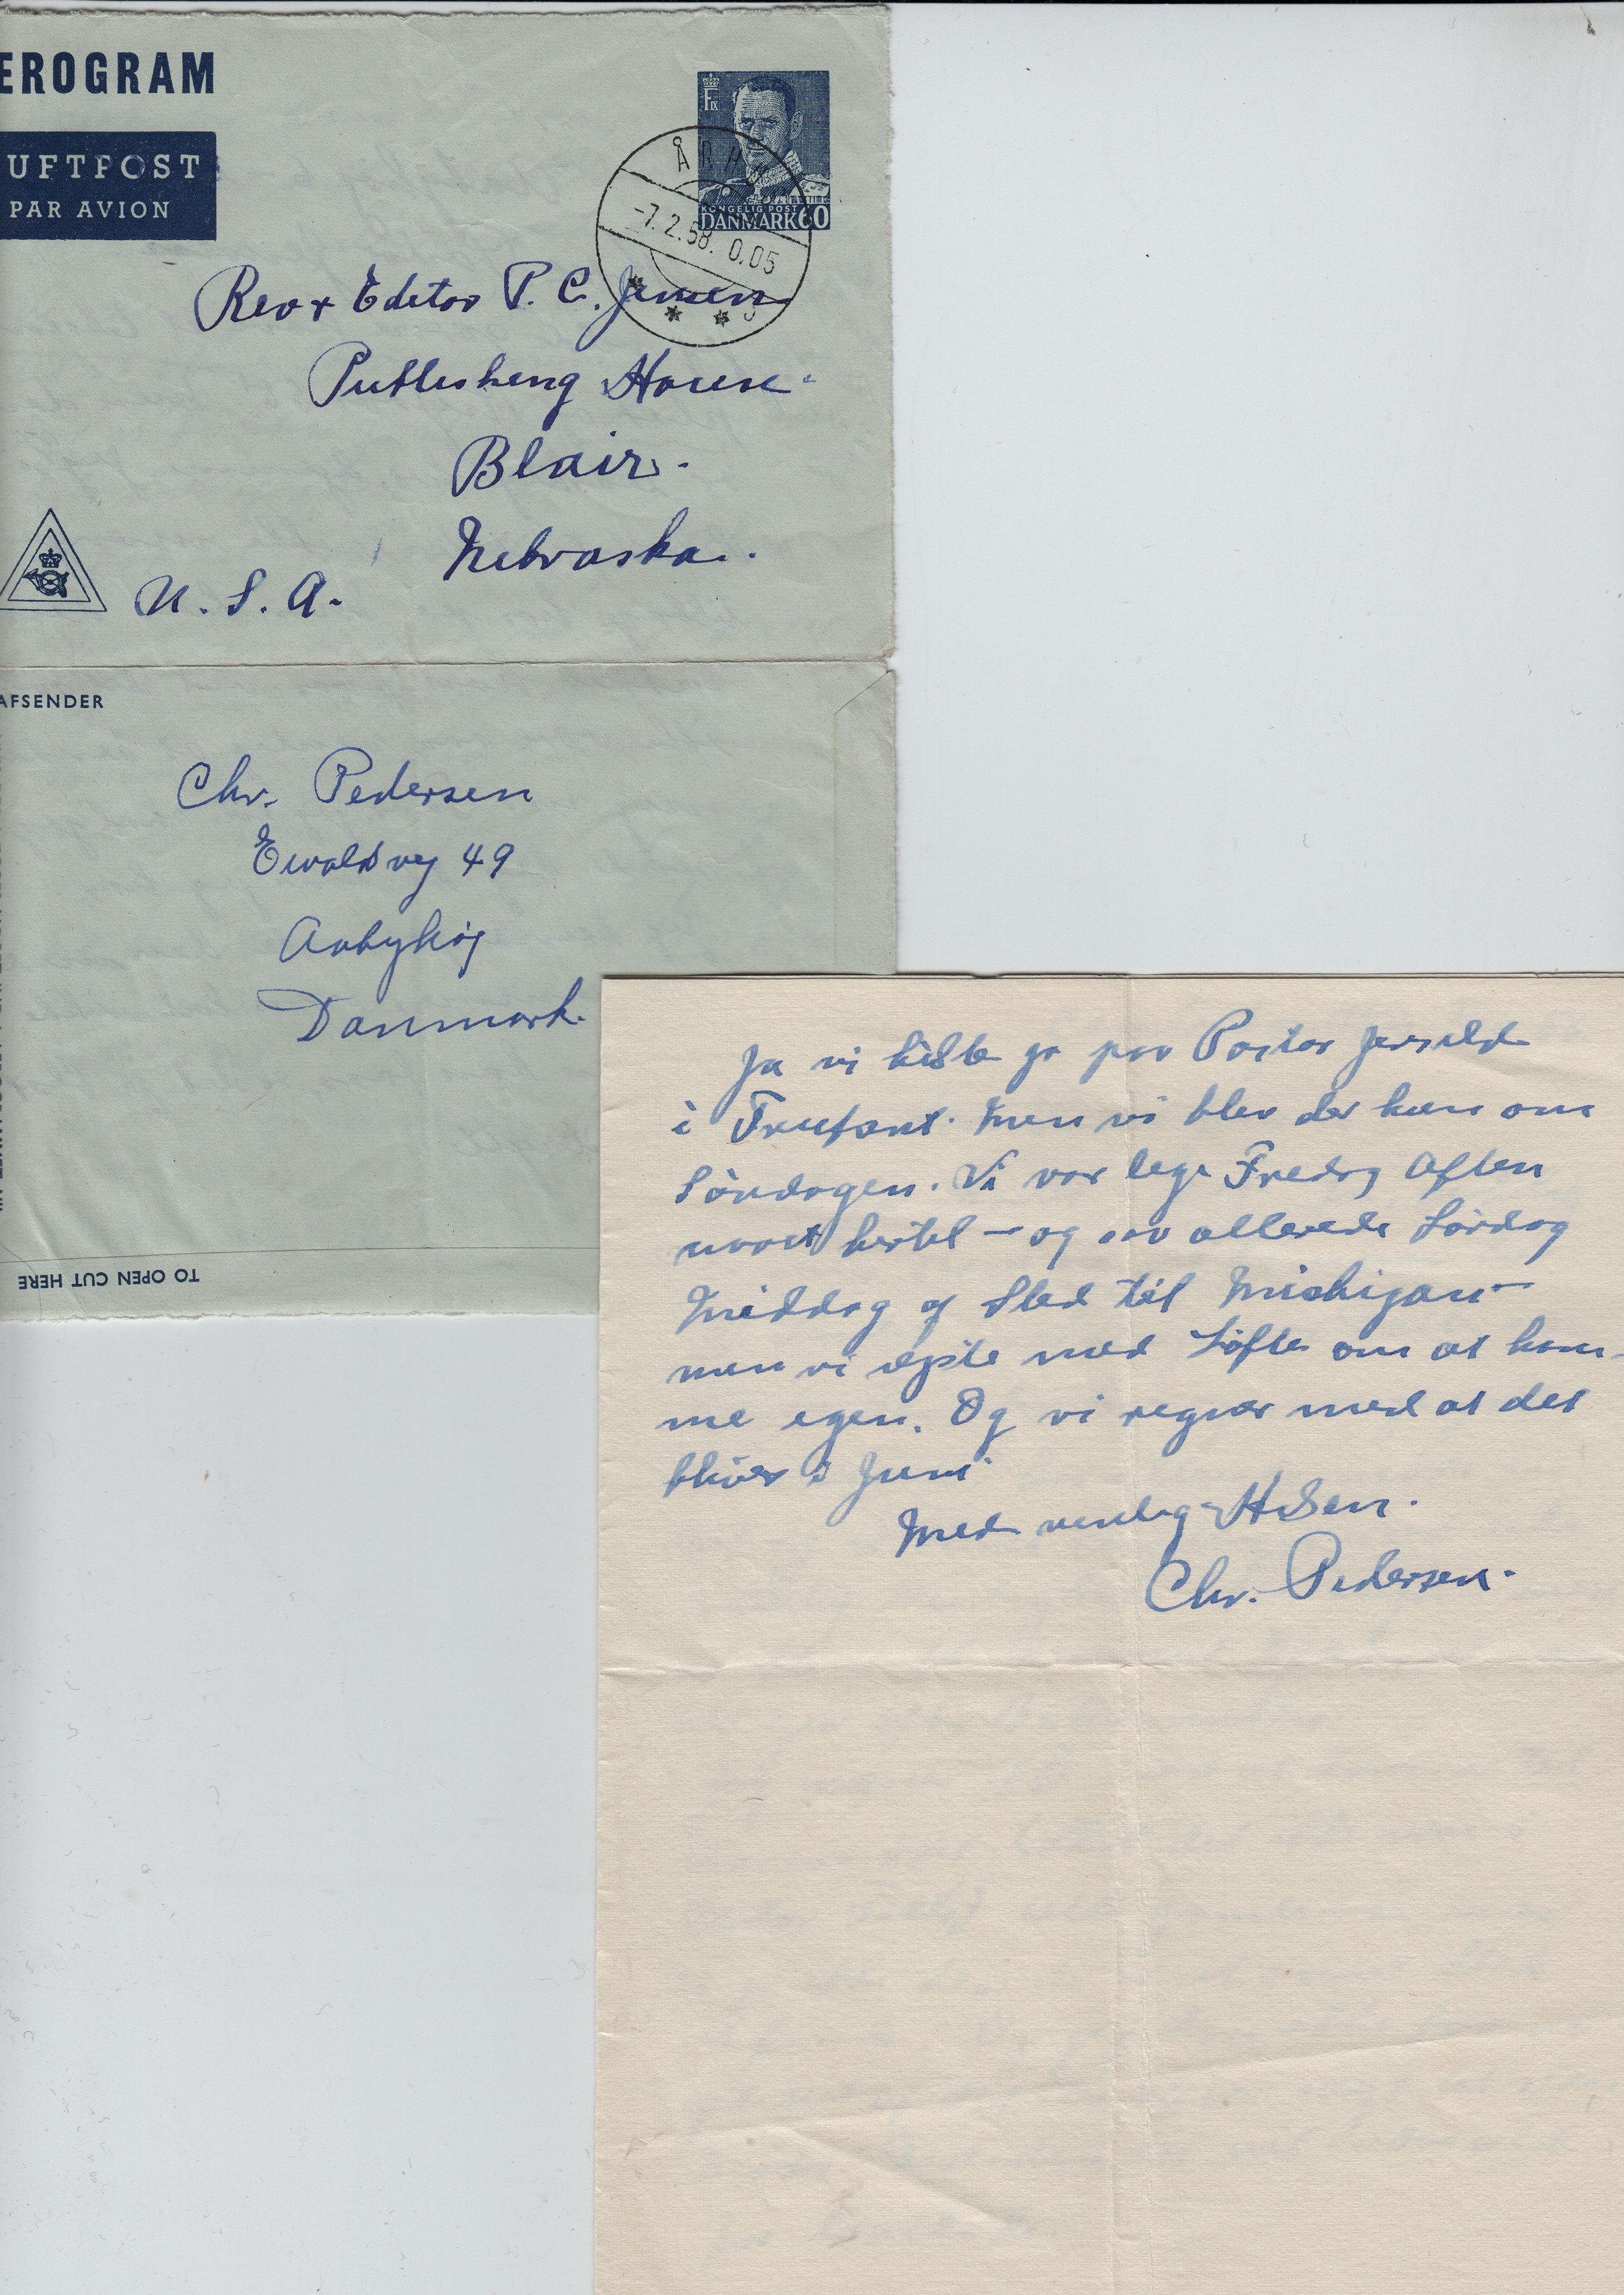 EROGRAM
UFTPOST
PAR AVION
KONGELIG POST
DANMARK 60
ÅRHUS
-7.2.58. 0.05
Rev + Editor P. C. Jensen
Publishing House.
Blair.
Nebraska.
U. S. A.
AFSENDER
Chr. Pedersen
Ewaldsvej 49
Aabyhøj
Danmark.
TO OPEN CUT HERE
Ja vi hilste jo paa Pastor Jersild
i Trufant. Men vi blev der kun om
Søndagen. Vi var lige Fredag Aften
hertil – og saa allerede Lørdag
Middag af Sted til Michigan –
men vi rejste med Løfte om at kom-
me igen. Og vi regner med at det
bliver i Juni
Med venlig Hilsen.
Chr. Pedersen.